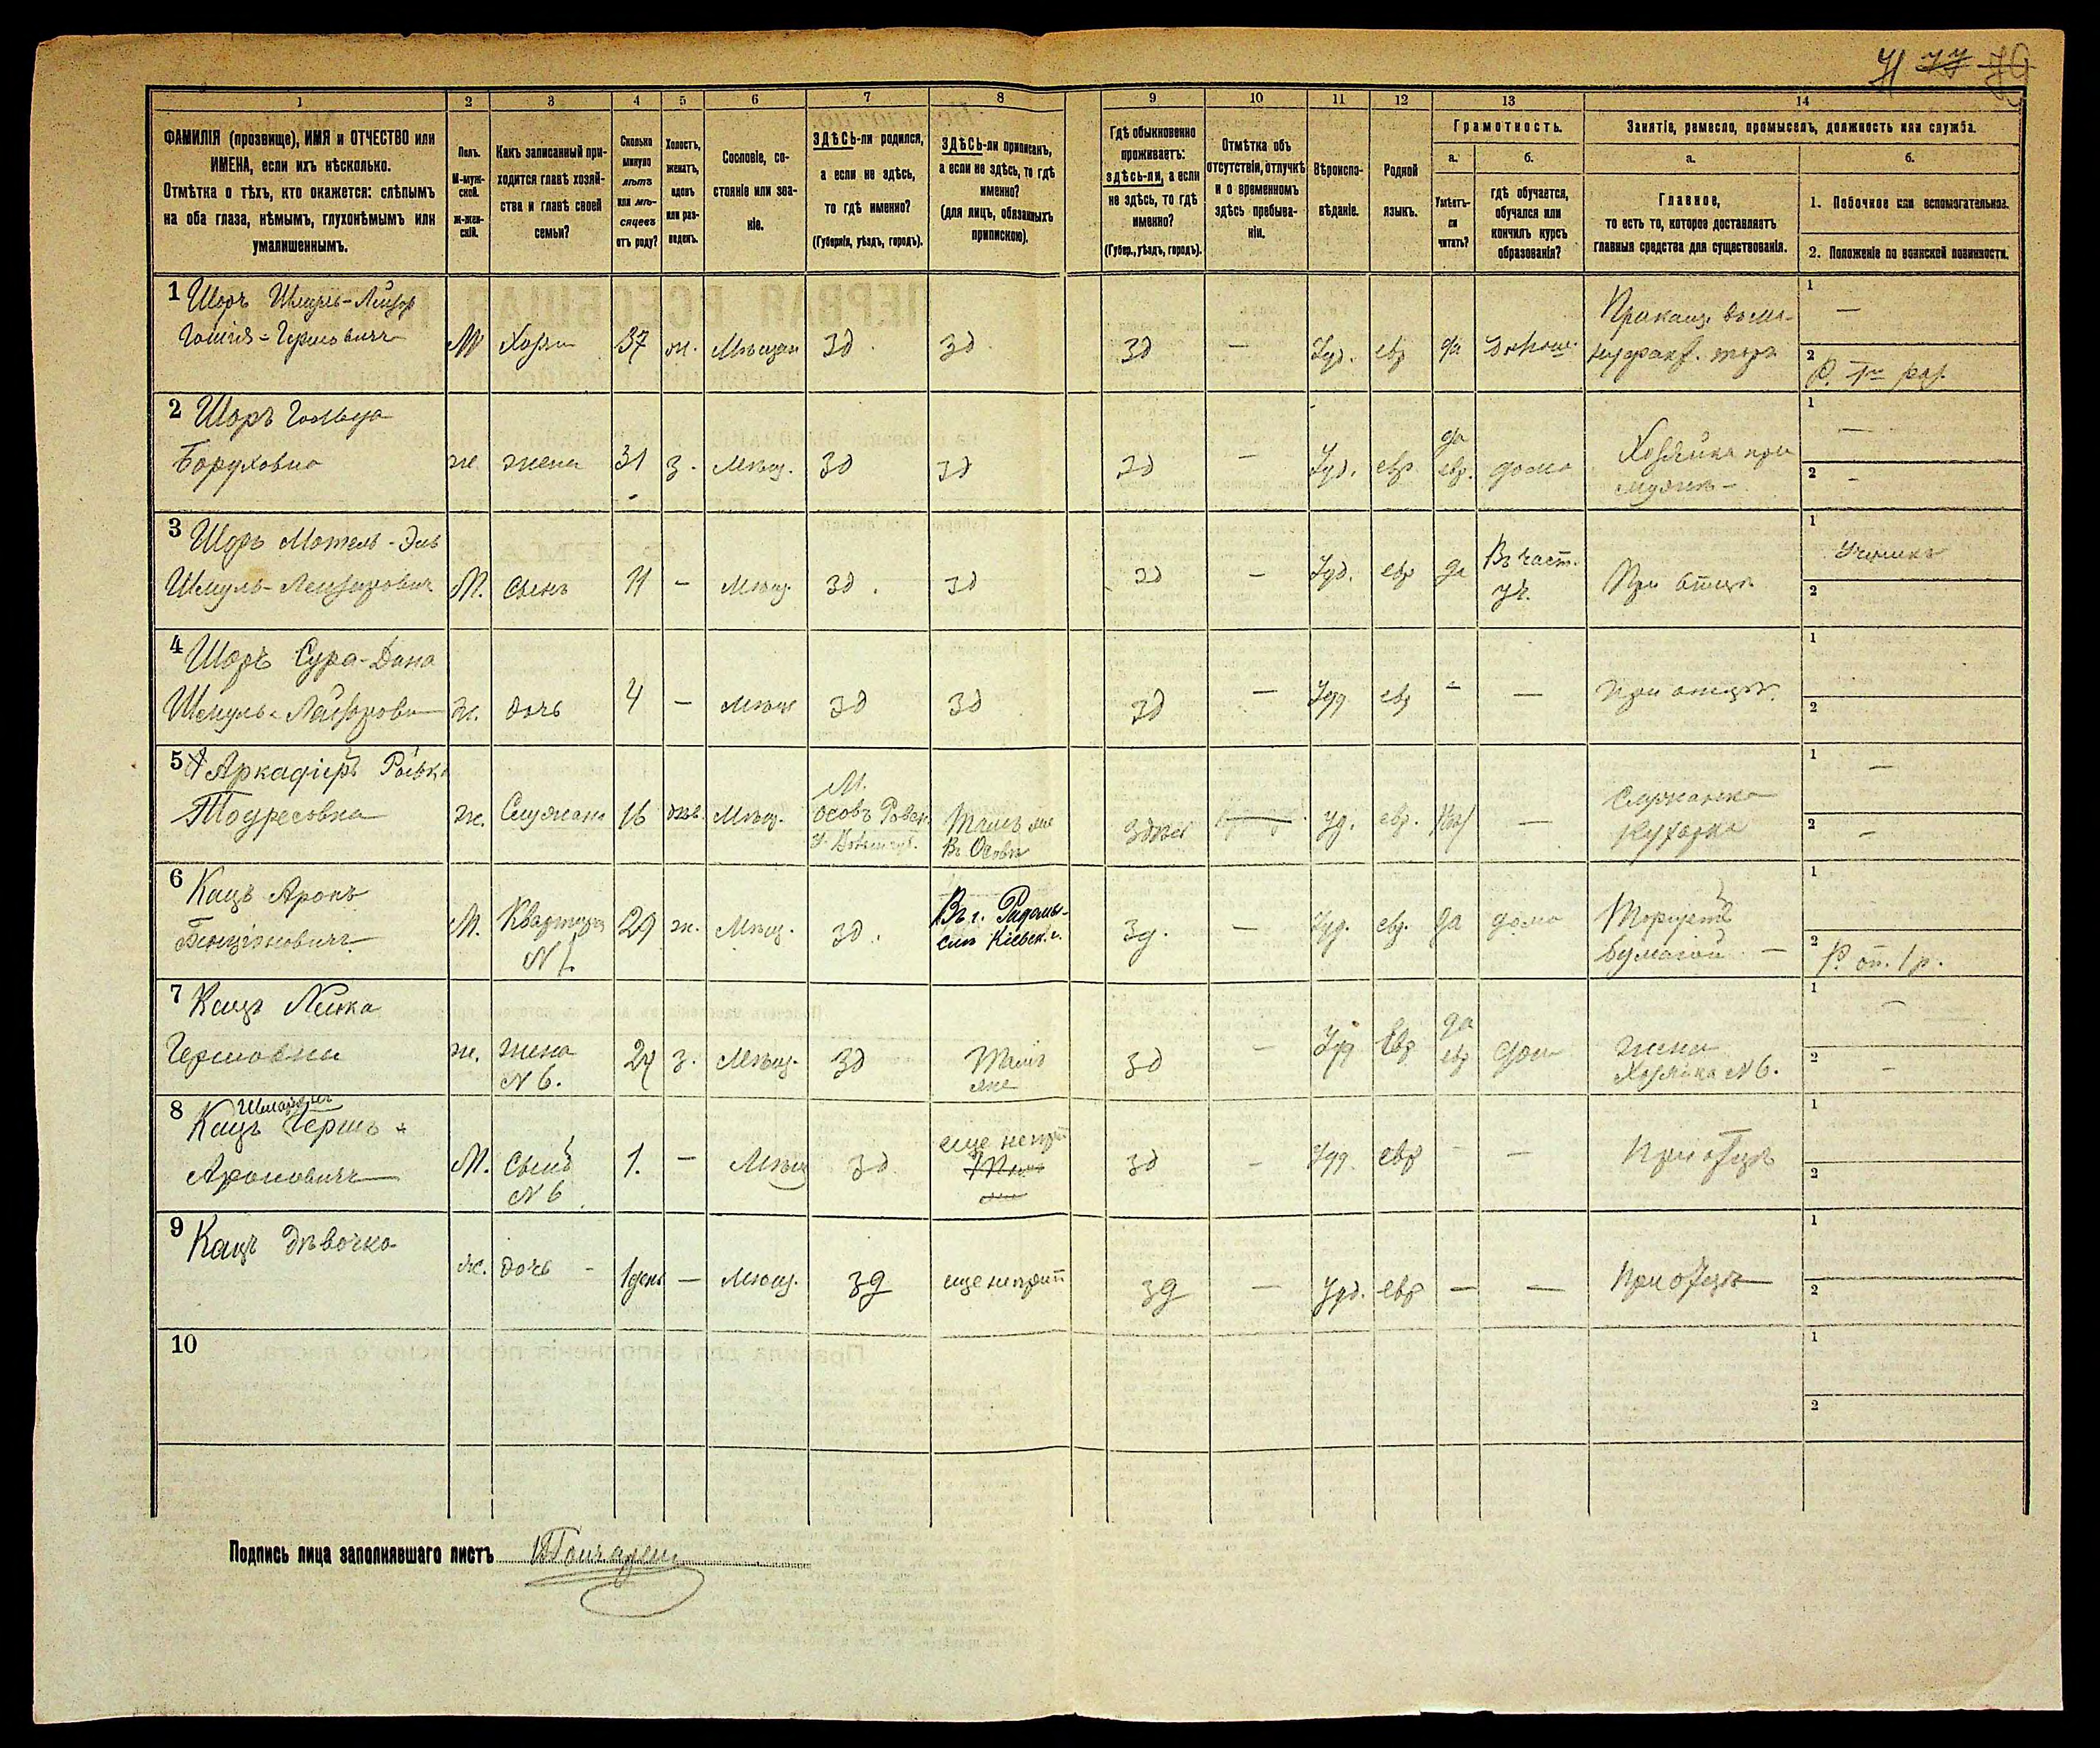 71 77 79
1 2 3 4 5 6 7 8 9 10 11 12 13 14
ФАМИЛІЯ (прозвище), ИМЯ и ОТЧЕСТВО или
ИМЕНА, если ихъ нѣсколько.
Отмѣтка о тѣхъ, кто окажется: слѣпымъ
на оба глаза, нѣмымъ, глухонѣмымъ или
умалишеннымъ.
Полъ.
М-муж-
ской.
ж-жен-
скій.
Какъ записанный при-
ходится главѣ хозяй-
ства и главѣ своей
семьи?
Сколько
минуло
лѣтъ
или мѣ-
сяцевъ
отъ роду?
Холостъ,
женатъ,
вдовъ
или раз-
веденъ.
Сословіе, со-
стояніе или зва-
ніе.
ЗДѢСЬ-ли родился,
а если не здѣсь,
то гдѣ именно?
(Губернія, уѣздъ, городъ).
ЗДѢСЬ-ли приписанъ,
а если не здѣсь, то гдѣ
именно?
(для лицъ, обязанныхъ
припискою).
Гдѣ обыкновенно
проживаетъ:
здѣсь-ли, а если
не здѣсь, то гдѣ
именно?
(Губер., уѣздъ, городъ).
Отмѣтка объ
отсутствіи, отлучкѣ
и о временномъ
здѣсь пребыва-
ніи.
Вѣроиспо-
вѣданіе.
Родной
языкъ.
Грамотность.
а.
Умѣетъ-
ли
читать?
б.
гдѣ обучается,
обучался или
кончилъ курсъ
образованія?
Занятіе, ремесло, промыселъ, должность или служба.
а.
Главное,
то есть то, которое доставляетъ
главныя средства для существованія.
б.
1. Побочное или вспомогательное.
2. Положеніе по воинской повинности.
1 Шоръ Шмуль-Лейзор
Гершовичъ
М Хозяи 37 ж. Мѣщан зд. зд. зд — Іуд. евр да
1 —
2 Р. 1го раз.
2 Шоръ Гольда
Боруховна
ж жена 31 з. Мѣщ. зд зд зд — Іуд. евр да
евр. дома
Хозяйка при
мужѣ —
1 —
2 —
3 Шоръ Мотель-
Шмуль-Лейзоровичъ
М. сынъ 11 — Мѣщ. зд. зд зд — Іуд. евр да
Въ част.
уч.
При отцѣ
1 Ученикъ
2
4 Шоръ Сура-Дина
Шмуль-Лейзорова
ж. дочь 4 — Мѣщ зд зд зд — Іуд евр — —
при отцѣ.
1
2
5 Ривка
Тодресовна
ж. Служанк 16 дѣв. Мѣщ.
М.
Осовъ Ровен.
у. Волынск.
Тамъ же
въ Осовѣ
здѣсь Іуд. евр. —
Служанка
Кухарка
1 —
2 —
6 Кацъ Аронъ
Бенціоновичъ
М. Квартиро
N 1.
29 ж. Мѣщ. зд.
Въ г. Радомы-
слѣ Кіевск. г.
зд. — Іуд. евр. да дома
Торгуетъ
бумагой —
1
2 Р. оп. 1 р.
7 Кацъ Лейка
Гершовна
ж. жена
N 6.
24 з. Мѣщ. зд
Тамъ
же
зд — Іуд Евр да
евр дом
жена
Хозяина N 6.
1 —
2 —
8 Кацъ Гершъ
Ароновичъ
М. сынъ
N 6
1. — Мѣщ зд
еще не прип
зд Іуд. евр — —
При отцѣ
1
2
9 Кацъ дѣвочка
ж. дочь — 1 день — Мѣщ. зд еще не прип зд — Іуд. евр — —
При отцѣ
1
2
10
1
2
Подпись лица заполнявшаго листъ